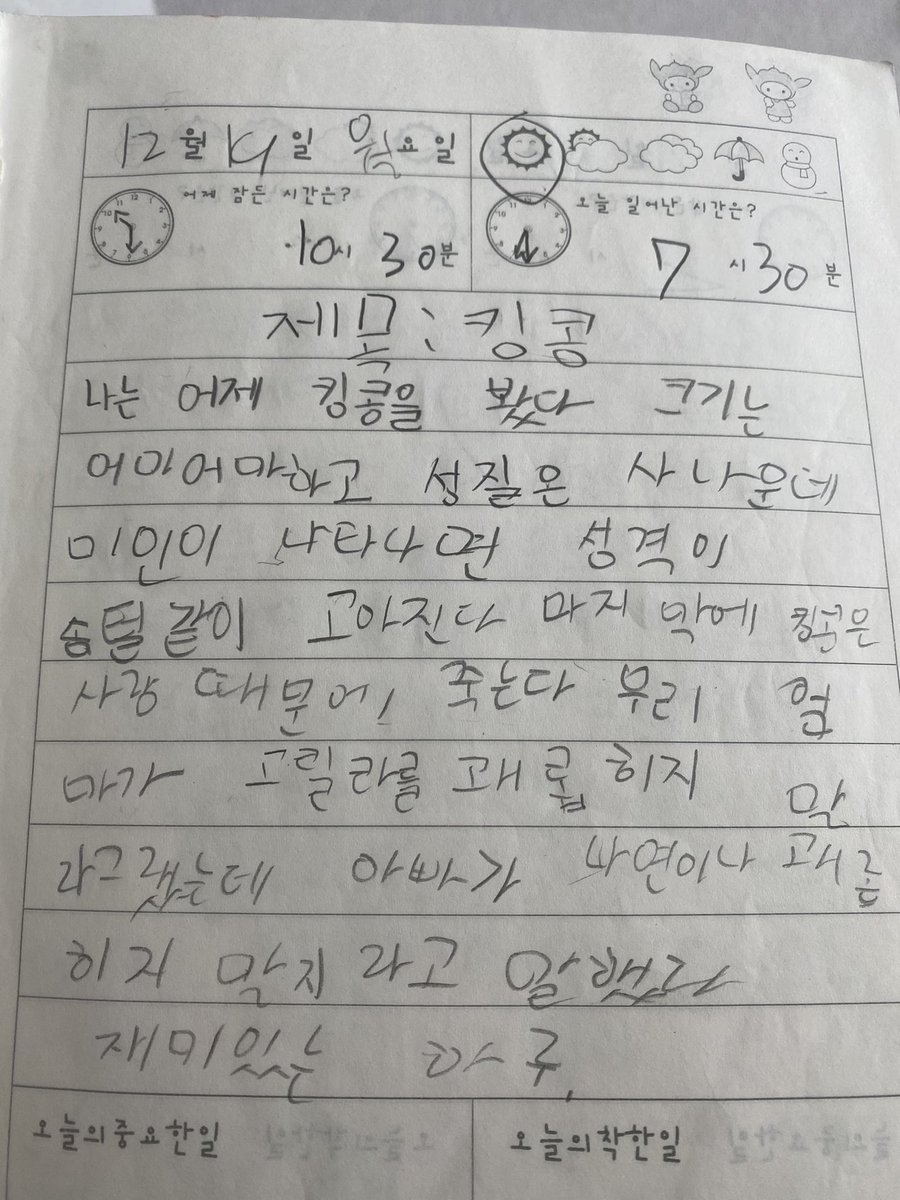 12월 19일 월요일
어제 잠든 시간은?
10시 30분
오늘 일어난 시간은?
7시 30분
제목: 킹콩
나는 어제 킹콩을 봤다 크기는
어마어마하고 성질은 사나운데
미인이 나타나면 성격이
솜털같이 고아진다 마지막에 킹콩은
사랑 때문에 죽는다 우리 엄
마가 고릴라를 괘롭히지 말
라그랬는데 아빠가 자연이나 괘롭
히지 말지라고 말했다
재미있는 하루
오늘의중요한일
오늘의착한일